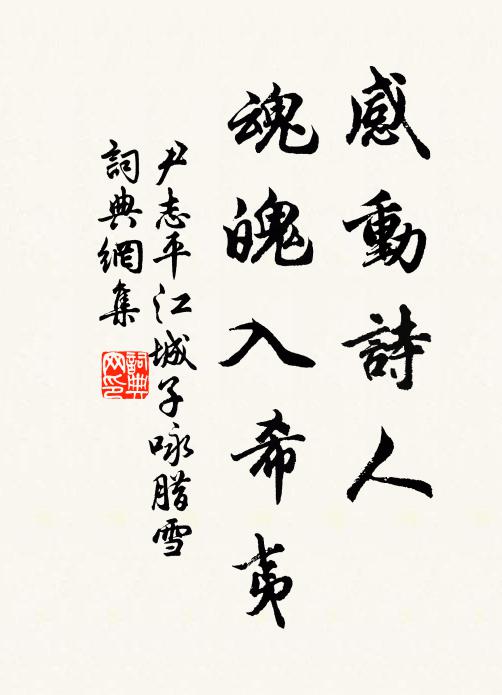 感動詩人
魂魄入希夷
尹志平江城子咏腊雪
詞典網集
詞典
网印